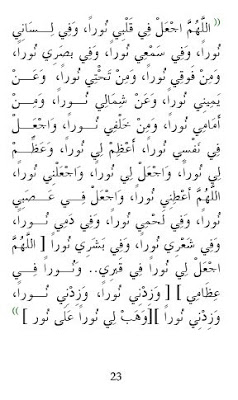 ((اللَّهُمَّ اجْعَلْ فِي قَلْبِي نُوراً، وَفِي لِسَانِي
نُوراً، وَفِي سَمْعِي نُوراً، وَفِي بَصَرِي نُوراً،
وَمِنْ فَوْقِي نُوراً، وَمِنْ تَحْتِي نُوراً، وَعَنْ
يَمِينِي نُوراً، وَعَنْ شِمَالِي نُوراً، وَمِنْ
أَمَامِي نُوراً، وَمِنْ خَلْفِي نُوراً، وَاجْعَلْ
فِي نَفْسِي نُوراً، أَعْظِمْ لِي نُوراً، وَعَظِّمْ
لِي نُوراً، وَاجْعَلْ لِي نُوراً، وَاجْعَلْنِي نُوراً،
اللَّهُمَّ أَعْطِنِي نُوراً، وَاجْعَلْ فِي عَصَبِي
نُوراً، وَفِي لَحْمِي نُوراً، وَفِي دَمِي نُوراً،
وَفِي شَعْرِي نُوراً، وَفِي بَشَرِي نُوراً [ اللَّهُمَّ
اجْعَلْ لِي نُوراً فِي قَبْرِي.. وَنُوراً فِي
عِظَامِي ] [ وَزِدْنِي نُوراً، وَزِدْنِي نُوراً،
وَزِدْنِي نُوراً ][وَهَبْ لِي نُوراً عَلَى نُور ]))
23